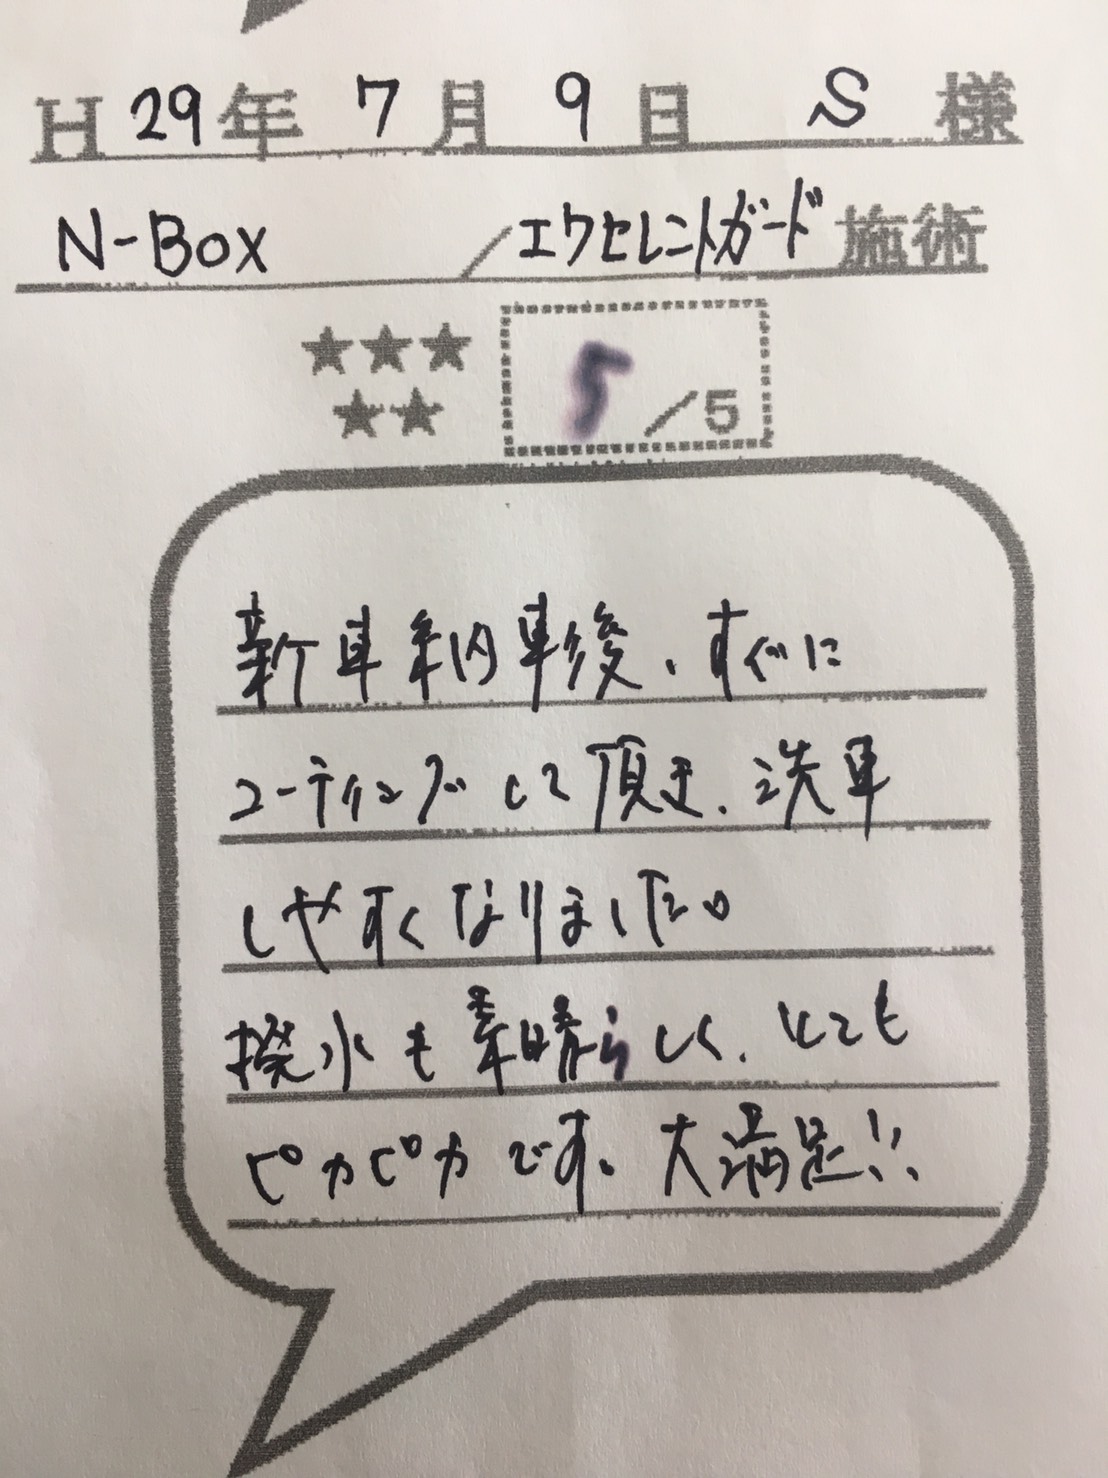 H 29年 7月 9日 S 様
N-Box / エクセレントガード 施術
★★★
★★
5 / 5
新車納車後、すぐに
コーティングして頂き、洗車
しやすくなりました。
撥水も素晴らしく、とても
ピカピカです。大満足!!